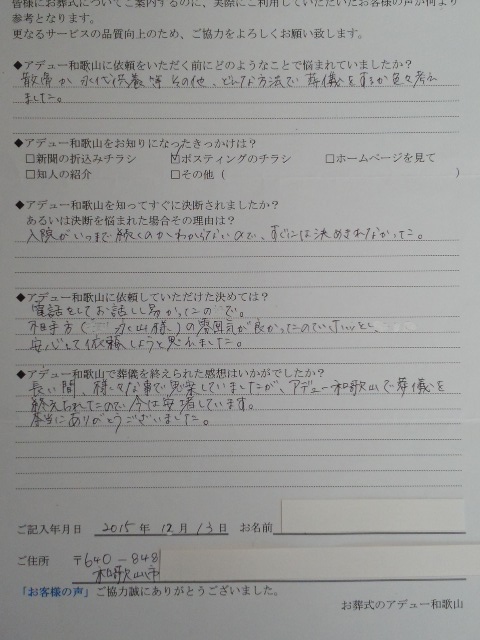 皆様にお葬式についてご案内するのに、実際にご利用していただいたお客様の声が何より
参考となります。
更なるサービスの品質向上のため、ご協力をよろしくお願い致します。
◆アデュー和歌山に依頼をいただく前にどのようなことで悩まれていましたか？
散骨か永代供養等その他、どんな方法で葬儀をするか色々考え
ました。
◆アデュー和歌山をお知りになったきっかけは？
□新聞の折込みチラシ ☑ポスティングのチラシ □ホームページを見て
□知人の紹介 □その他（ ）
◆アデュー和歌山を知ってすぐに決断されましたか？
あるいは決断を悩まれた場合その理由は？
入院がいつまで続くのかわからないので、すぐには決めきれなかった。
◆アデュー和歌山に依頼していただけた決めては？
電話をしてお話しし易かったので。
相手方（永山様）の雰囲気が良かったので
安心して依頼しようと思えました。
◆アデュー和歌山で葬儀を終えられた感想はいかがでしたか？
長い間、様々な事で思案していましたが、アデュー和歌山で葬儀を
終えられたので今は安堵しています。
本当にありがとうございました。
ご記入年月日 2015年 12月 13日 お名前
ご住所 〒640-848
和歌山市
「お客様の声」ご協力誠にありがとうございました。
お葬式のアデュー和歌山